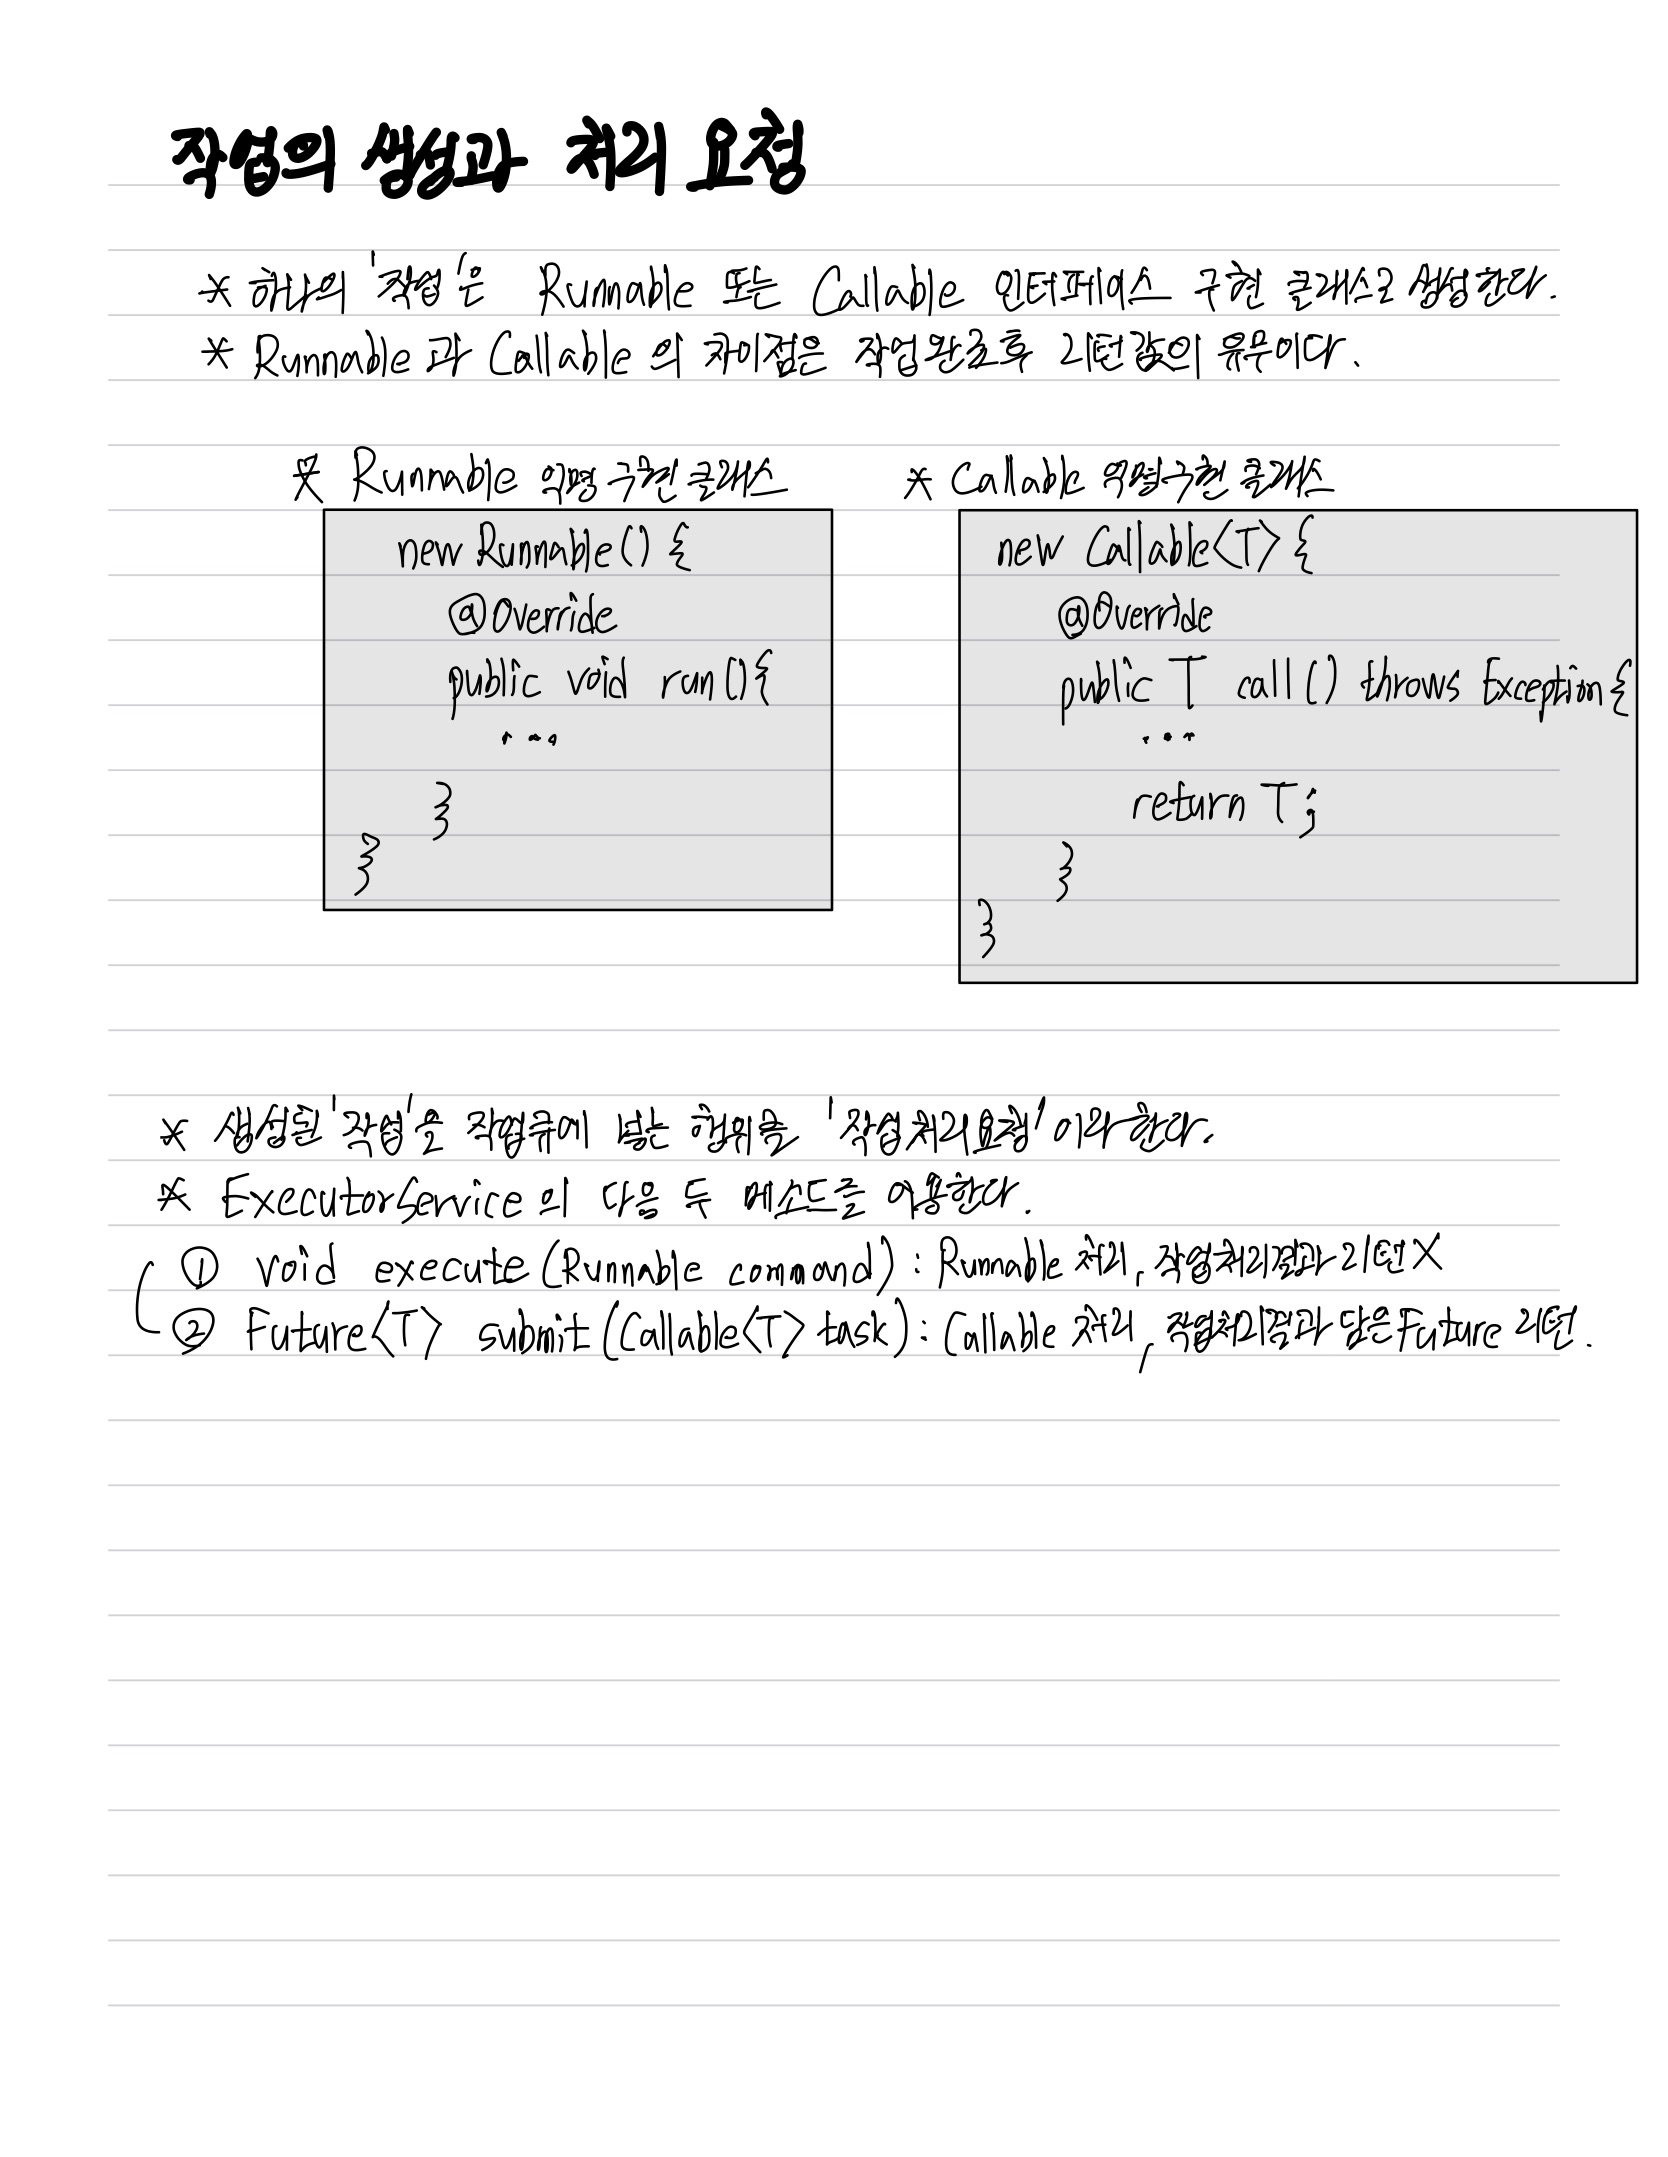 작업의 생성과 처리 요청
* 하나의 '작업'은 Runnable 또는 Callable 인터페이스 구현 클래스로 생성한다.
* Runnable과 Callable의 차이점은 작업완료후 리턴값의 유무이다.
* Runnable 익명 구현 클래스
new Runnable() {
@Override
public void run(){
...
}
}
* Callable 익명구현 클래스
new Callable<T> {
@Override
public T call() throws Exception{
...
return T;
}
}
* 생성된 '작업'을 작업큐에 넣는 행위를 '작업처리요청'이라한다.
* ExecutorService의 다음 두 메소드를 이용한다.
① void execute(Runnable command) : Runnable 처리, 작업처리결과 리턴 X
② Future<T> submit(Callable<T> task) : Callable 처리, 작업처리결과 담은 Future 리턴.